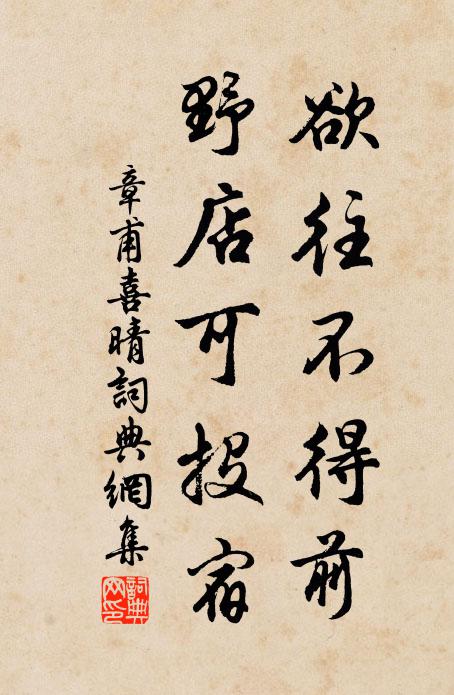 欲往不得前
野店可投宿
章甫喜晴詞典網集
詞典網印